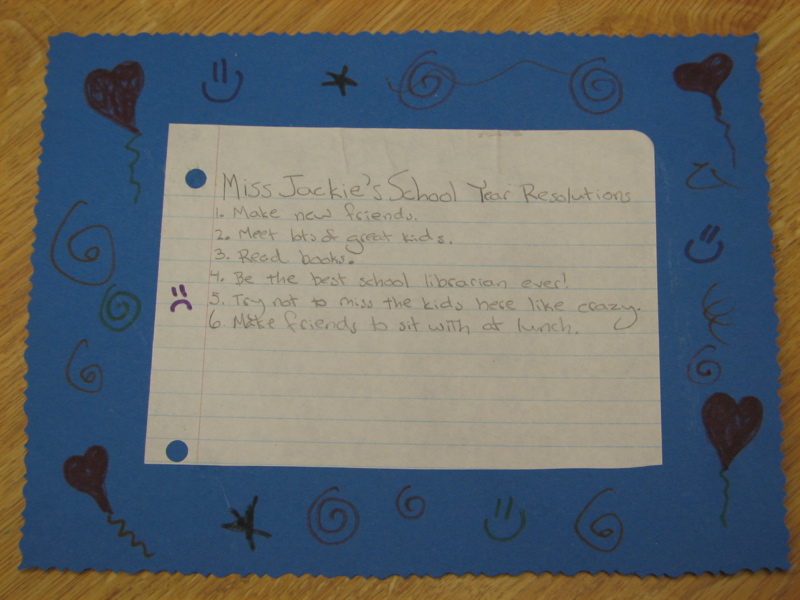 Miss Jackie's School Year Resolutions
1. Make new friends.
2. Meet lots of great kids.
3. Read books.
4. Be the best school librarian ever!
5. Try not to miss the kids here like crazy.
6. Make friends to sit with at lunch.